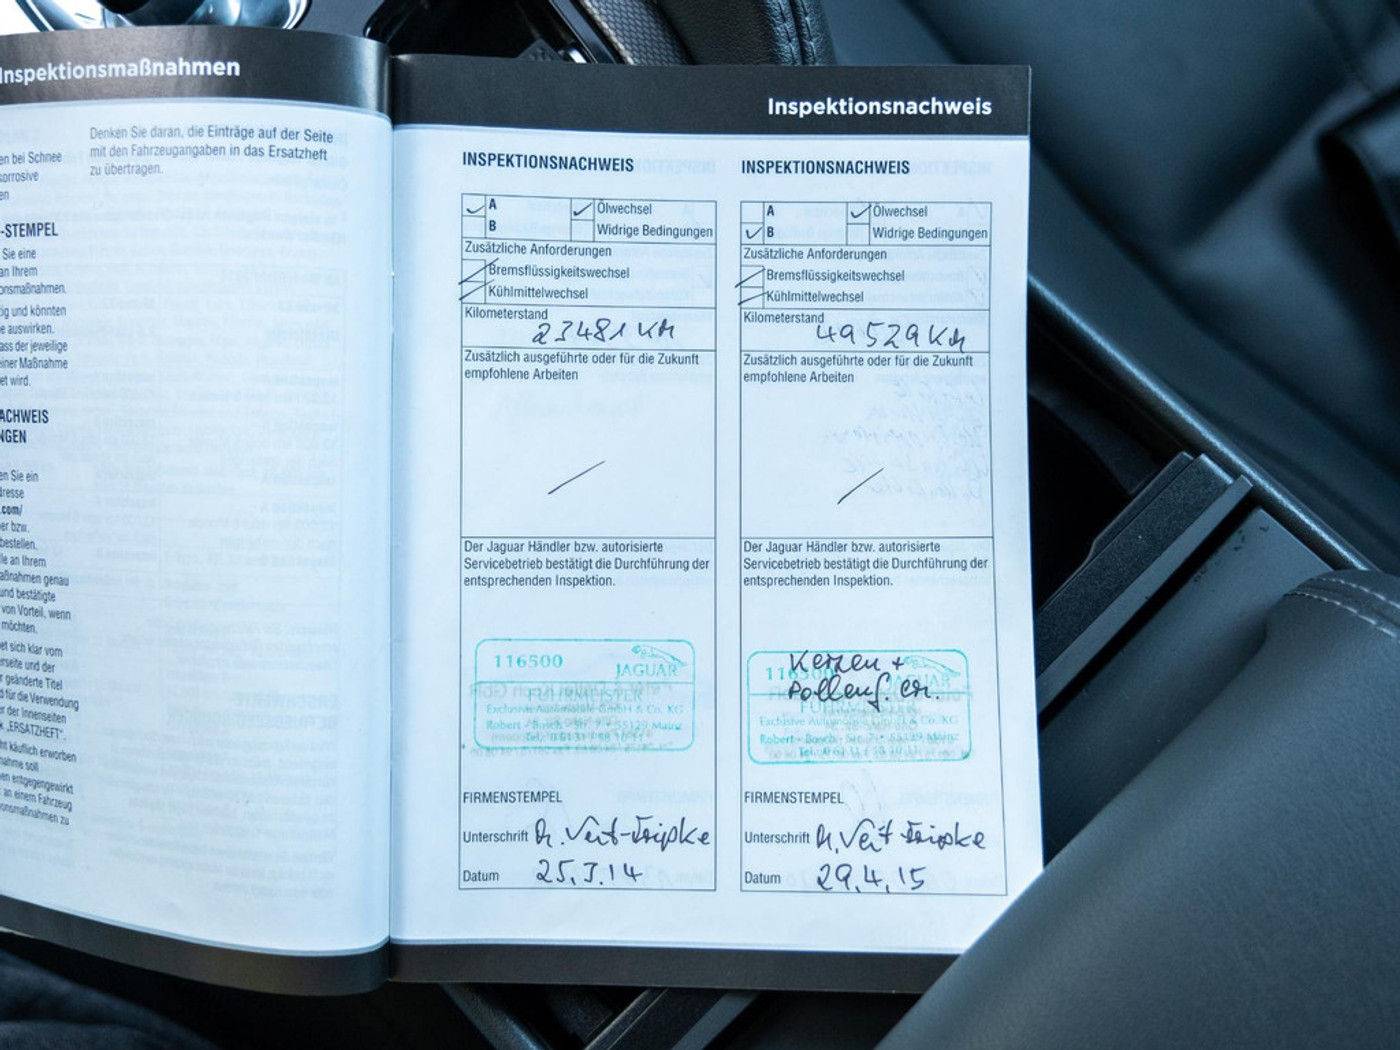 Inspektionsmaßnahmen
en bei Schnee
korrosive
en
-STEMPEL
Sie eine
an Ihrem
onsmaßnahmen.
ig und könnten
e auswirken.
ass der jeweilige
einer Maßnahme
et wird.
ACHWEIS
NGEN
en Sie ein
dresse
.com/
er bzw.
bestellen.
le an Ihrem
aßnahmen genau
und bestätigte
von Vorteil, wenn
möchten.
et sich klar vom
erseite und der
r geänderte Titel
d für die Verwendung
er der Innenseiten
k „ERSATZHEFT“.
ht käuflich erworben
nahme soll
en entgegengewirkt
an einem Fahrzeug
onsmaßnahmen zu
Denken Sie daran, die Einträge auf der Seite
mit den Fahrzeugangaben in das Ersatzheft
zu übertragen.
Inspektionsnachweis
INSPEKTIONSNACHWEIS
A Ölwechsel
B Widrige Bedingungen
Zusätzliche Anforderungen
Bremsflüssigkeitswechsel
Kühlmittelwechsel
Kilometerstand
23481 KM
Zusätzlich ausgeführte oder für die Zukunft
empfohlene Arbeiten
Der Jaguar Händler bzw. autorisierte
Servicebetrieb bestätigt die Durchführung der
entsprechenden Inspektion.
116500 JAGUAR
FUHRMEISTER
Exclusive Automobile GmbH & Co. KG
Robert - Bosch - Str. 7 • 55129 Mainz
Tel.: 0 61 31 / 58 10 11
FIRMENSTEMPEL
Unterschrift
Datum 25.3.14
INSPEKTIONSNACHWEIS
A Ölwechsel
B Widrige Bedingungen
Zusätzliche Anforderungen
Bremsflüssigkeitswechsel
Kühlmittelwechsel
Kilometerstand
49529 KM
Zusätzlich ausgeführte oder für die Zukunft
empfohlene Arbeiten
Der Jaguar Händler bzw. autorisierte
Servicebetrieb bestätigt die Durchführung der
entsprechenden Inspektion.
Kerzen +
Pollenf. er.
116500 JAGUAR
FUHRMEISTER
Exclusive Automobile GmbH & Co. KG
Robert - Bosch - Str. 7 • 55129 Mainz
Tel.: 0 61 31 / 58 10 11
FIRMENSTEMPEL
Unterschrift
Datum 29.4.15